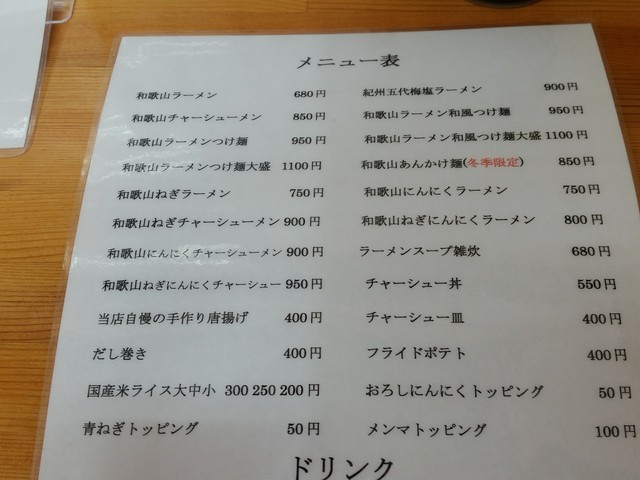 メニュー表
和歌山ラーメン 680円
和歌山チャーシューメン 850円
和歌山ラーメンつけ麺 950円
和歌山ラーメンつけ麺大盛 1100円
和歌山ねぎラーメン 750円
和歌山ねぎチャーシューメン 900円
和歌山にんにくチャーシューメン 900円
和歌山ねぎにんにくチャーシュー 950円
当店自慢の手作り唐揚げ 400円
だし巻き 400円
国産米ライス大中小 300 250 200円
青ねぎトッピング 50円
紀州五代梅塩ラーメン 900円
和歌山ラーメン和風つけ麺 950円
和歌山ラーメン和風つけ麺大盛 1100円
和歌山あんかけ麺(冬季限定) 850円
和歌山にんにくラーメン 750円
和歌山ねぎにんにくラーメン 800円
ラーメンスープ雑炊 680円
チャーシュー丼 550円
チャーシュー皿 400円
フライドポテト 400円
おろしにんにくトッピング 50円
メンマトッピング 100円
ドリンク